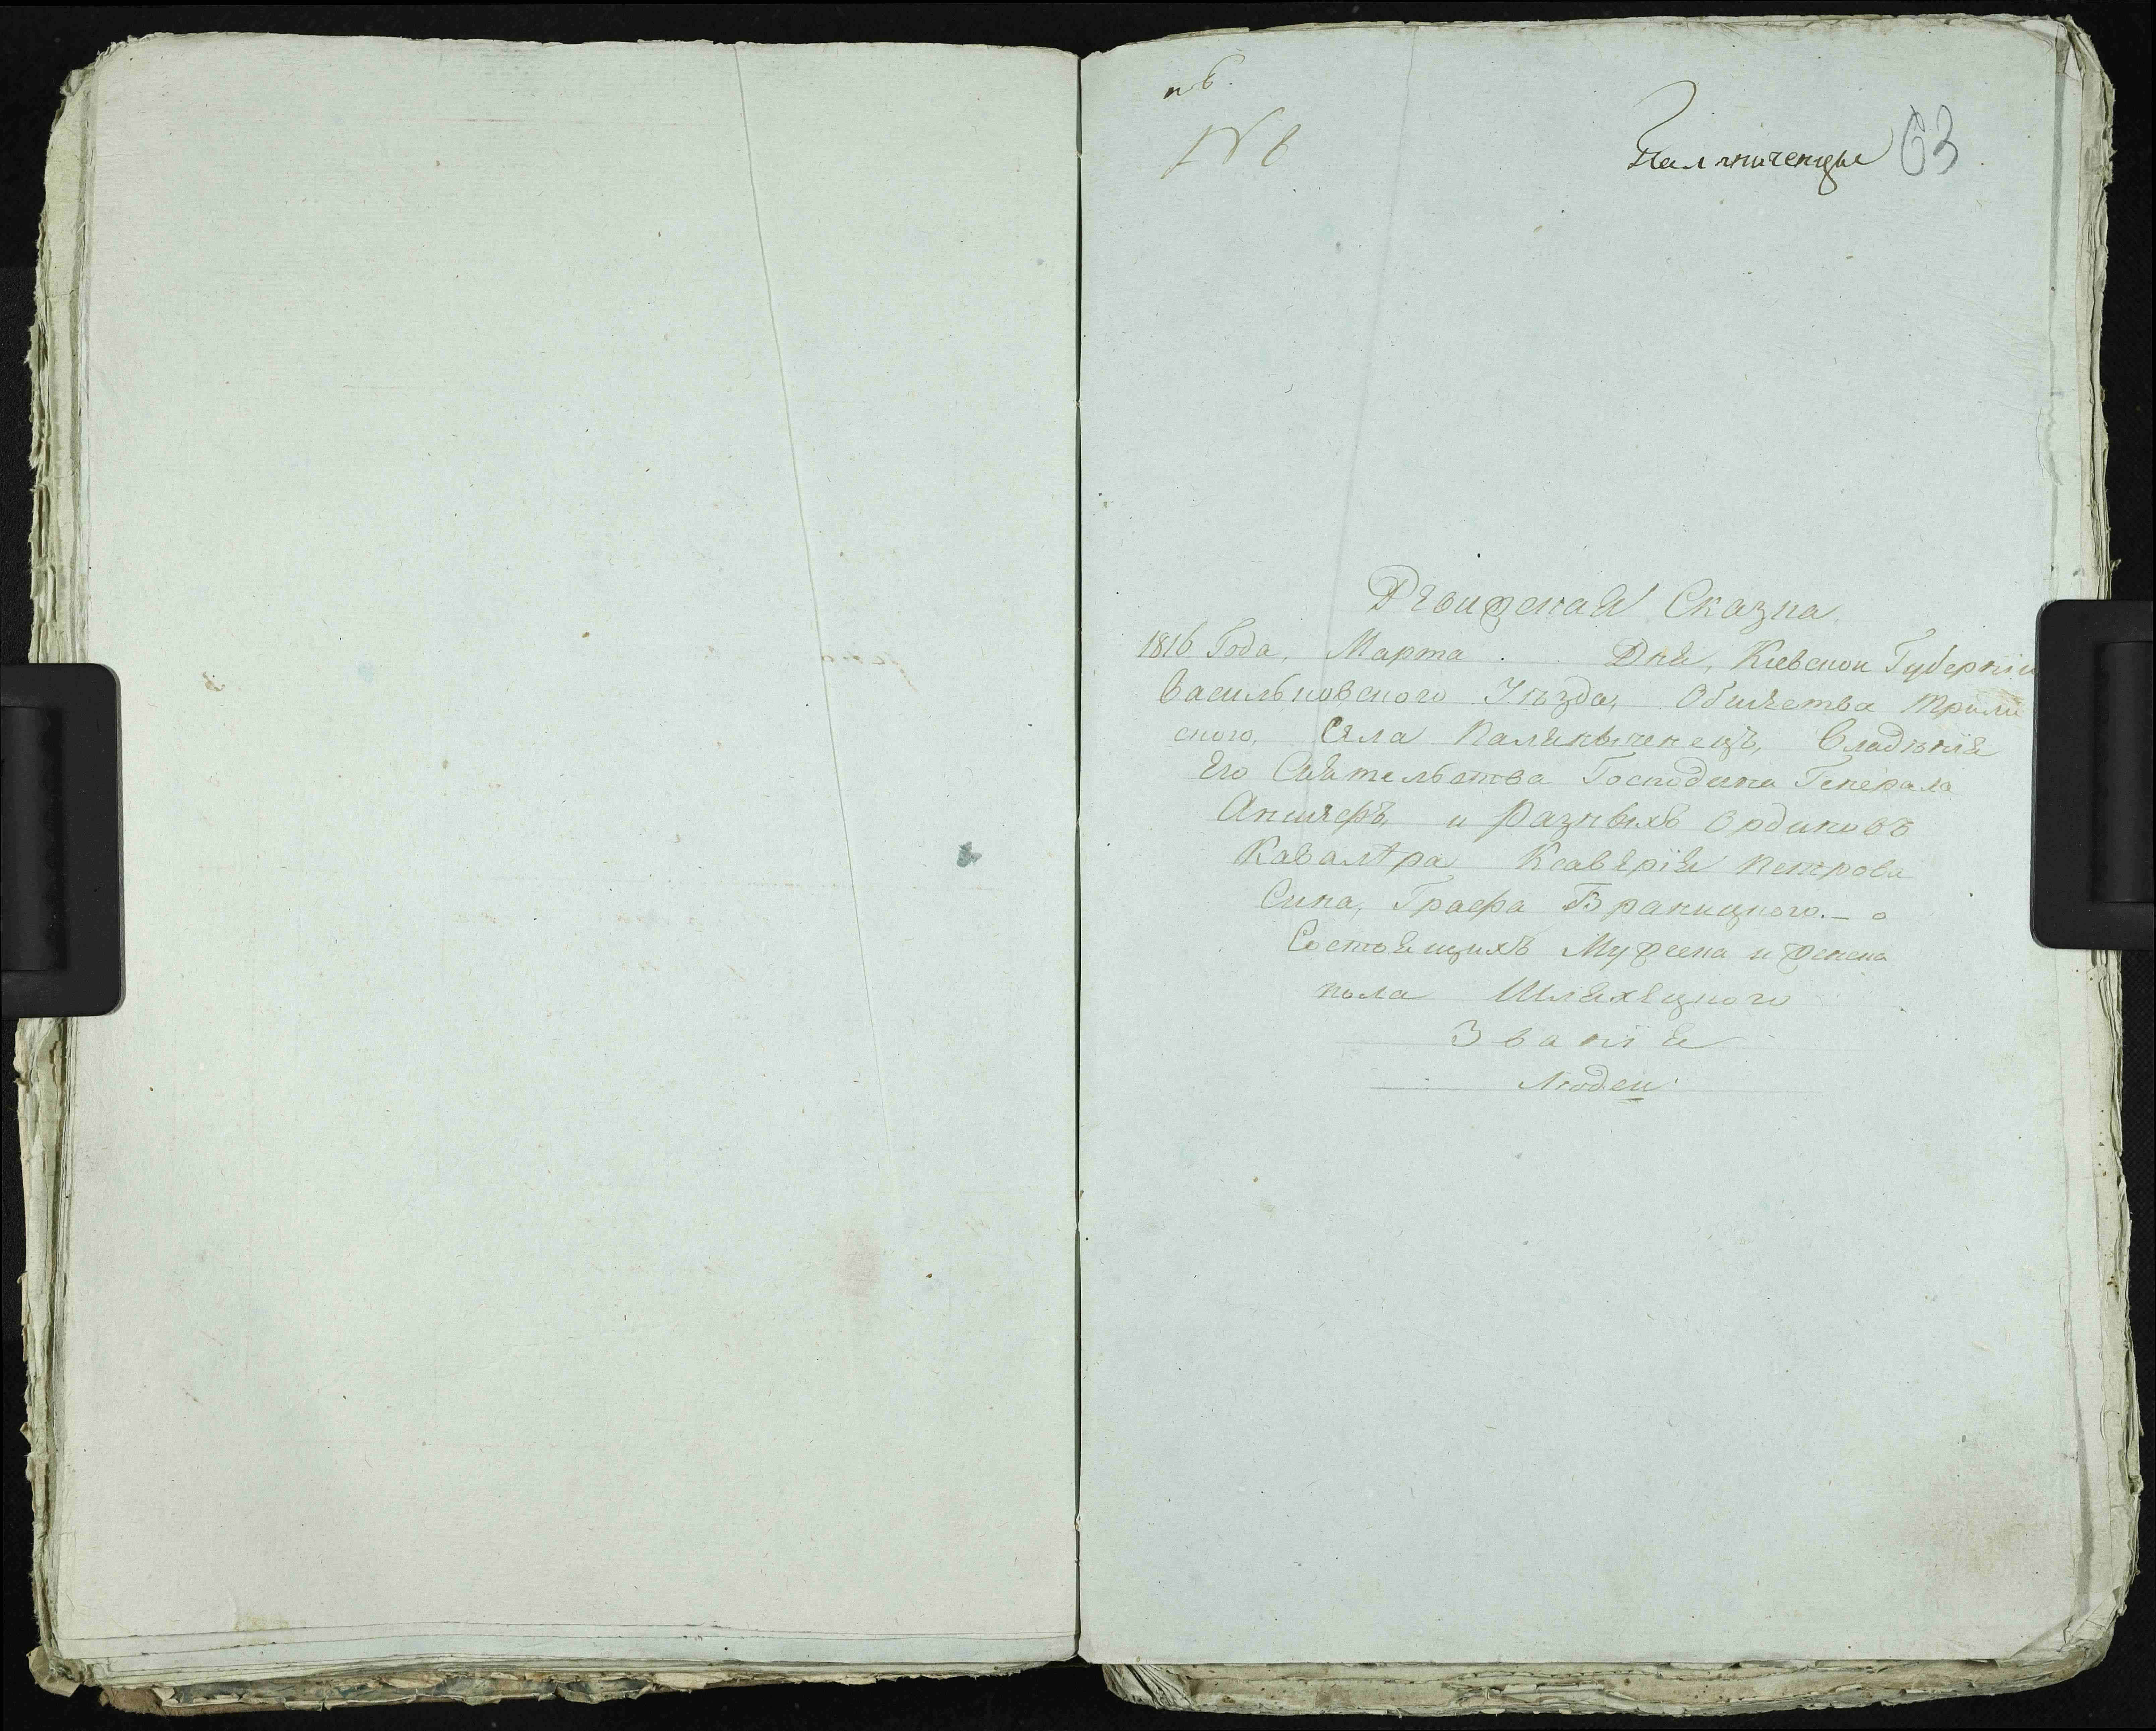 п 6.
№ 6
Палониченцы 63
Ревизская Сказка
1816 Года, Марта Дня, Киевской Губернии
Васильковского Уезда, Общества Трили
ского, Села Паляниченецъ, Владѣния
Его Сиятельства Господина Генерала
Аншефъ, и Разныхъ Ординовъ
Кавалѣра Ксаверія Петрова
Сина, Графа Браницкого. – о
Состоящихъ Мужеска и Женска
пола Шляхецкого
Званія
Людей